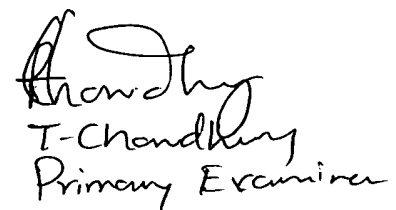 Chowdhury
T-Chowdhury
Primary Examiner